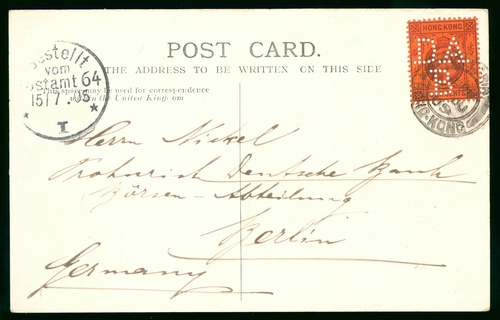 POST CARD.
THE ADDRESS TO BE WRITTEN ON THIS SIDE
This space may be used for correspondence
in the United Kingdom
HONGKONG
D A
B
HONG-KONG
Bestellt
vom
Postamt 64
15/7.05
I
Herrn Nickel
Deutsche Bank
Börsen-Abteilung
Berlin
Germany